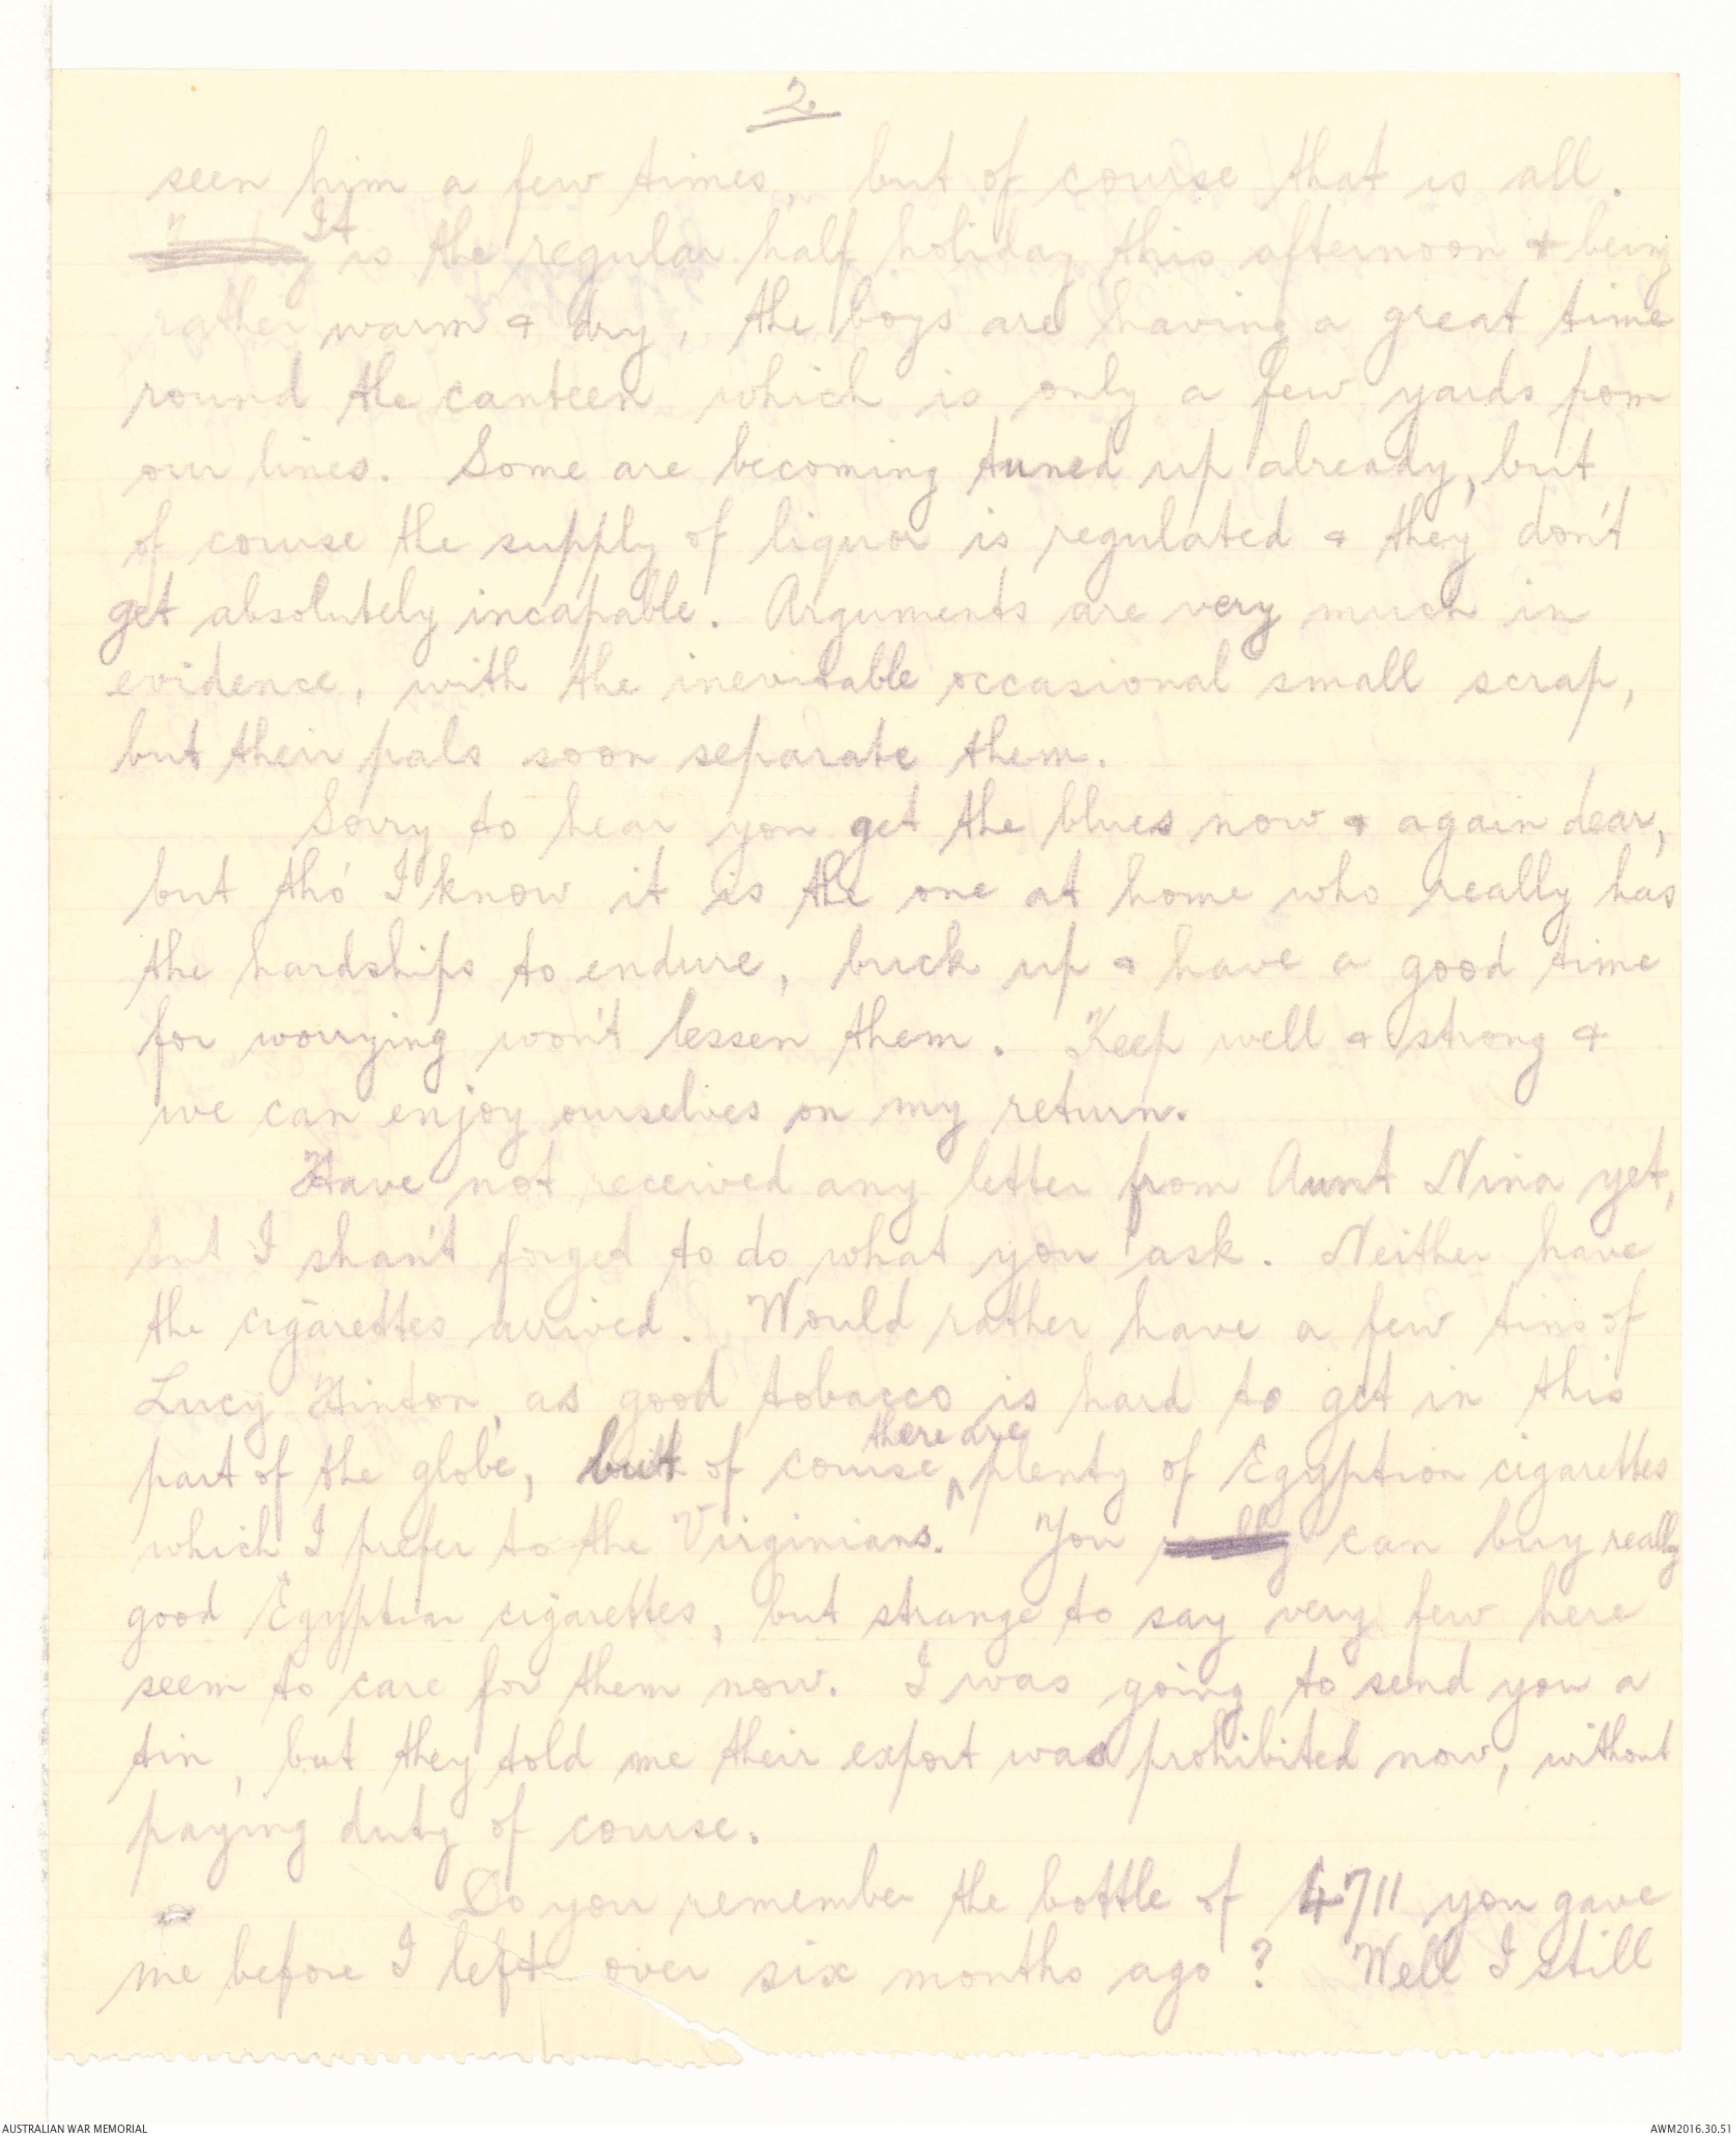 2.
seen him a few times, but of course that is all.
It is the regular half holiday this afternoon & being
rather warm & dry, the boys are having a great time
round the canteen which is only a few yards from
our lines. Some are becoming tuned up already, but
of course the supply of liquor is regulated & they don't
get absolutely incapable. Arguments are very much in
evidence, with the inevitable occasional small scrap,
but their pals soon separate them.
Sorry to hear you get the blues now & again dear,
but tho' I know it is the one at home who really has
the hardships to endure, buck up & have a good time
for worrying won't lessen them. Keep well & strong &
we can enjoy ourselves on my return.
Have not received any letter from Aunt Nina yet,
but I shan't forget to do what you ask. Neither have
the cigarettes arrived. Would rather have a few tins of
Lucy Hinton, as good tobacco is hard to get in this
part of the globe, but of course there are plenty of Egyption cigarettes
which I prefer to the "Virginians." You really can buy really
good Egyptian cigarettes, but strange to say very few here
seem to care for them now. I was going to send you a
tin, but they told me their export was prohibited now, without
paying duty of course.
Do you remember the bottle of 4711 you gave
me before I left over six months ago? Well I still
AUSTRALIAN WAR MEMORIAL
AWM2016.30.51